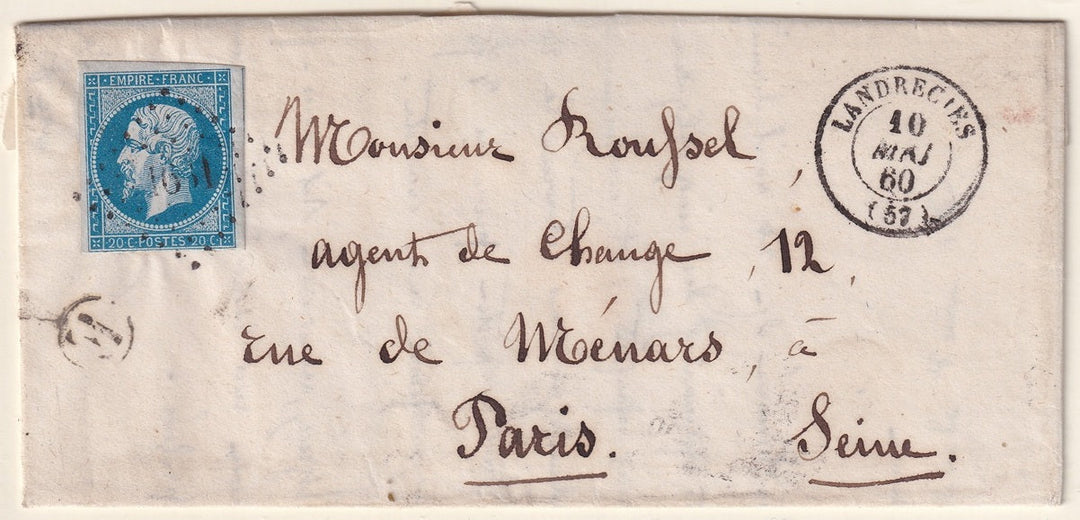 EMPIRE · FRANC ·
20·C·POSTES·20·C
LANDRECIES
10
MAI
60
(57)
Monsieur Roussel,
agent de Change, 12,
rue de Ménars, à
Paris. Seine.